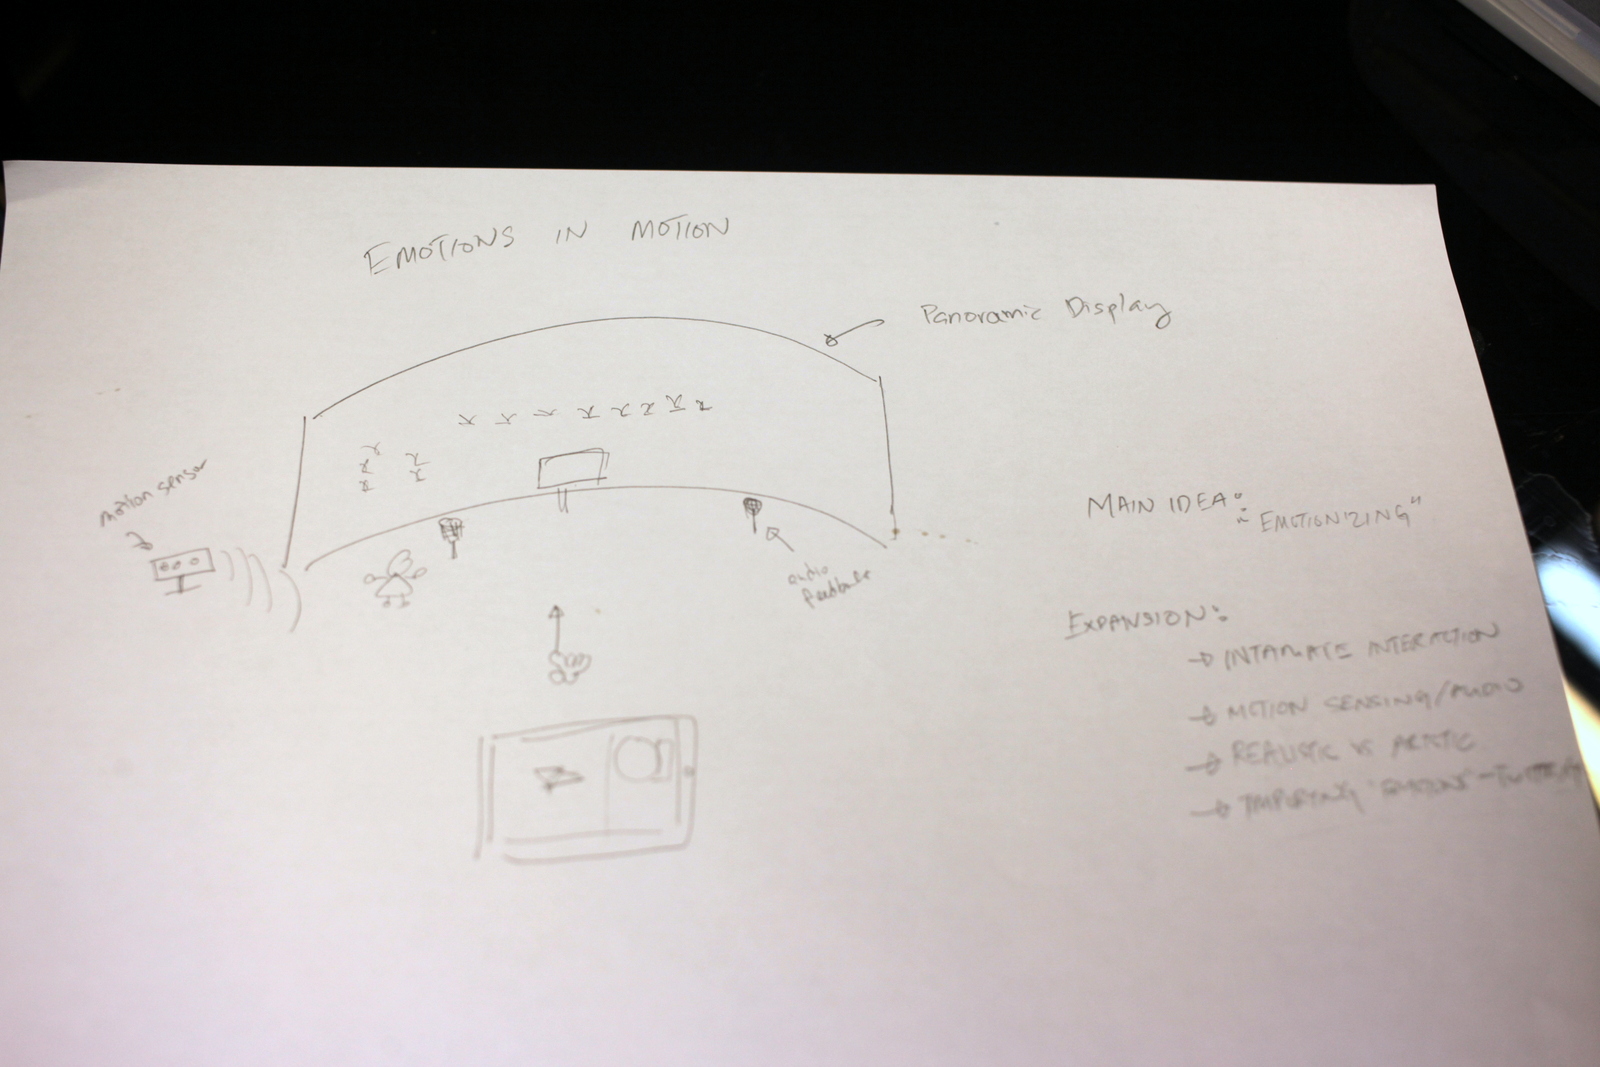 EMOTIONS IN MOTION
Panoramic Display
motion sensor
audio
feedback
MAIN IDEA:
"EMOTIONIZING"
EXPANSION:
→ INTAMATE INTERACTION
→ MOTION SENSING/AUDIO
→ REALISTIC VS ARTISTIC
→ IMPORTING "EMOTIONS" -